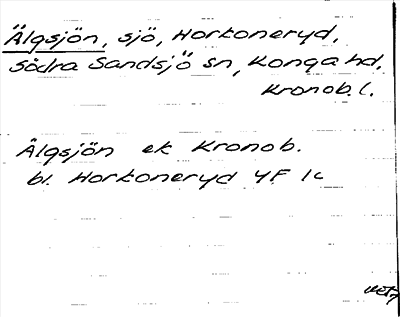 Älgsjön, sjö, Hortoneryd,
Södra Sandsjö sn, Konga hd,
Kronob. l.
Älgsjön ek Kronob.
bl. Hortoneryd 4F 1c